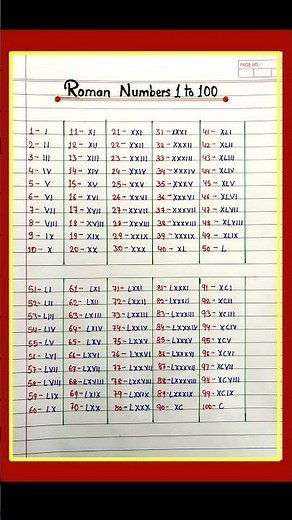 PAGE NO.:
Roman Numbers 1 to 100
1 - I 11 - XI 21 - XXI 31 - XXXI 41 - XLI
2 - II 12 - XII 22 - XXII 32 - XXXII 42 - XLII
3 - III 13 - XIII 23 - XXIII 33 - XXXIII 43 - XLIII
4 - IV 14 - XIV 24 - XXIV 34 - XXXIV 44 - XLIV
5 - V 15 - XV 25 - XXV 35 - XXXV 45 - XLV
6 - VI 16 - XVI 26 - XXVI 36 - XXXVI 46 - XLVI
7 - VII 17 - XVII 27 - XXVII 37 - XXXVII 47 - XLVII
8 - VIII 18 - XVIII 28 - XXVIII 38 - XXXVIII 48 - XLVIII
9 - IX 19 - XIX 29 - XXIX 39 - XXXIX 49 - XLIX
10 - X 20 - XX 30 - XXX 40 - XL 50 - L
51 - LI 61 - LXI 71 - LXXI 81 - LXXXI 91 - XCI
52 - LII 62 - LXII 72 - LXXII 82 - LXXXII 92 - XCII
53 - LIII 63 - LXIII 73 - LXXIII 83 - LXXXIII 93 - XCIII
54 - LIV 64 - LXIV 74 - LXXIV 84 - LXXXIV 94 - XCIV
55 - LV 65 - LXV 75 - LXXV 85 - LXXXV 95 - XCV
56 - LVI 66 - LXVI 76 - LXXVI 86 - LXXXVI 96 - XCVI
57 - LVII 67 - LXVII 77 - LXXVII 87 - LXXXVII 97 - XCVII
58 - LVIII 68 - LXVIII 78 - LXXVIII 88 - LXXXVIII 98 - XCVIII
59 - LIX 69 - LXIX 79 - LXXIX 89 - LXXXIX 99 - XCIX
60 - LX 70 - LXX 80 - LXXX 90 - XC 100 - C